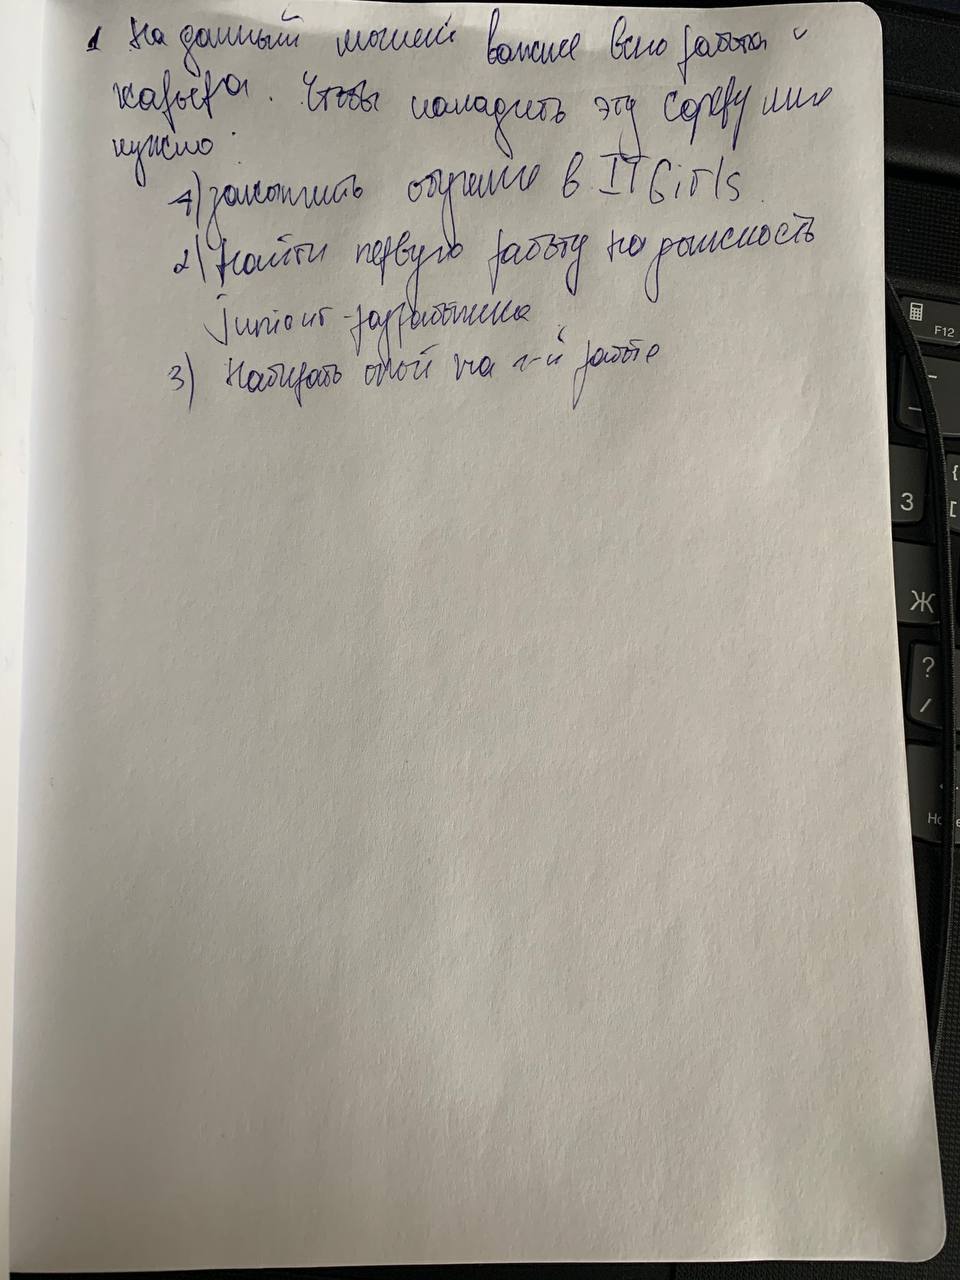 1 На данный момент важнее всего работа и
карьера. Чтобы наладить эту сферу мне
нужно:
1) закончить обучение в ITGirls
2) Найти первую работу на должность
junior-разработчика
3) Набирать опыт на 1-й работе
F12
3
Ж
?
/
{
[